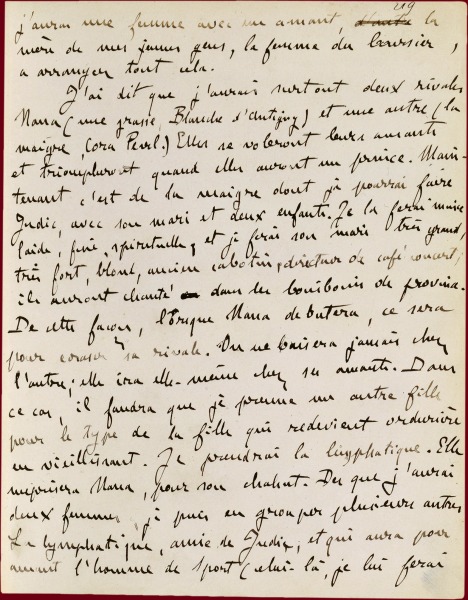 219
j'aurai une femme avec un amant, la
mère de mes jeunes gens, la femme du boursier,
a arranger tout cela.
J'ai dit que j'aurais surtout deux rivales
Nana (une grasse, Blanche d'Antigny) et une autre (la
maigre, Cora Pearl.) Elles se voleront leurs amants
et triompheront quand elles auront un prince. Main-
tenant c'est de la maigre dont je pourrai faire
Judic, avec son mari et deux enfants. Je la ferai mince
laide, fine, spirituelle, et je ferai son mari très grand,
très fort, blond, ancien cabotin, directeur de café concert;
ils auront chanté dans les bouibouis de province.
De cette façon, lorsque Nana débutera, ce sera
pour écraser sa rivale. On ne baisera jamais chez
l'autre; elle ira elle-même chez ses amants. Dans
ce cas, il faudra que je prenne une autre fille
pour le type de la fille qui redevient ordurière
en vieillissant. Je prendrai la lymphatique. Elle
méprisera Nana, pour son chahut. Dès que j'aurai
deux femmes, je puis en grouper plusieurs autres
La lymphatique, amie de Judic, et qui aura pour
amant l'homme de sport (celui-là, je lui ferai